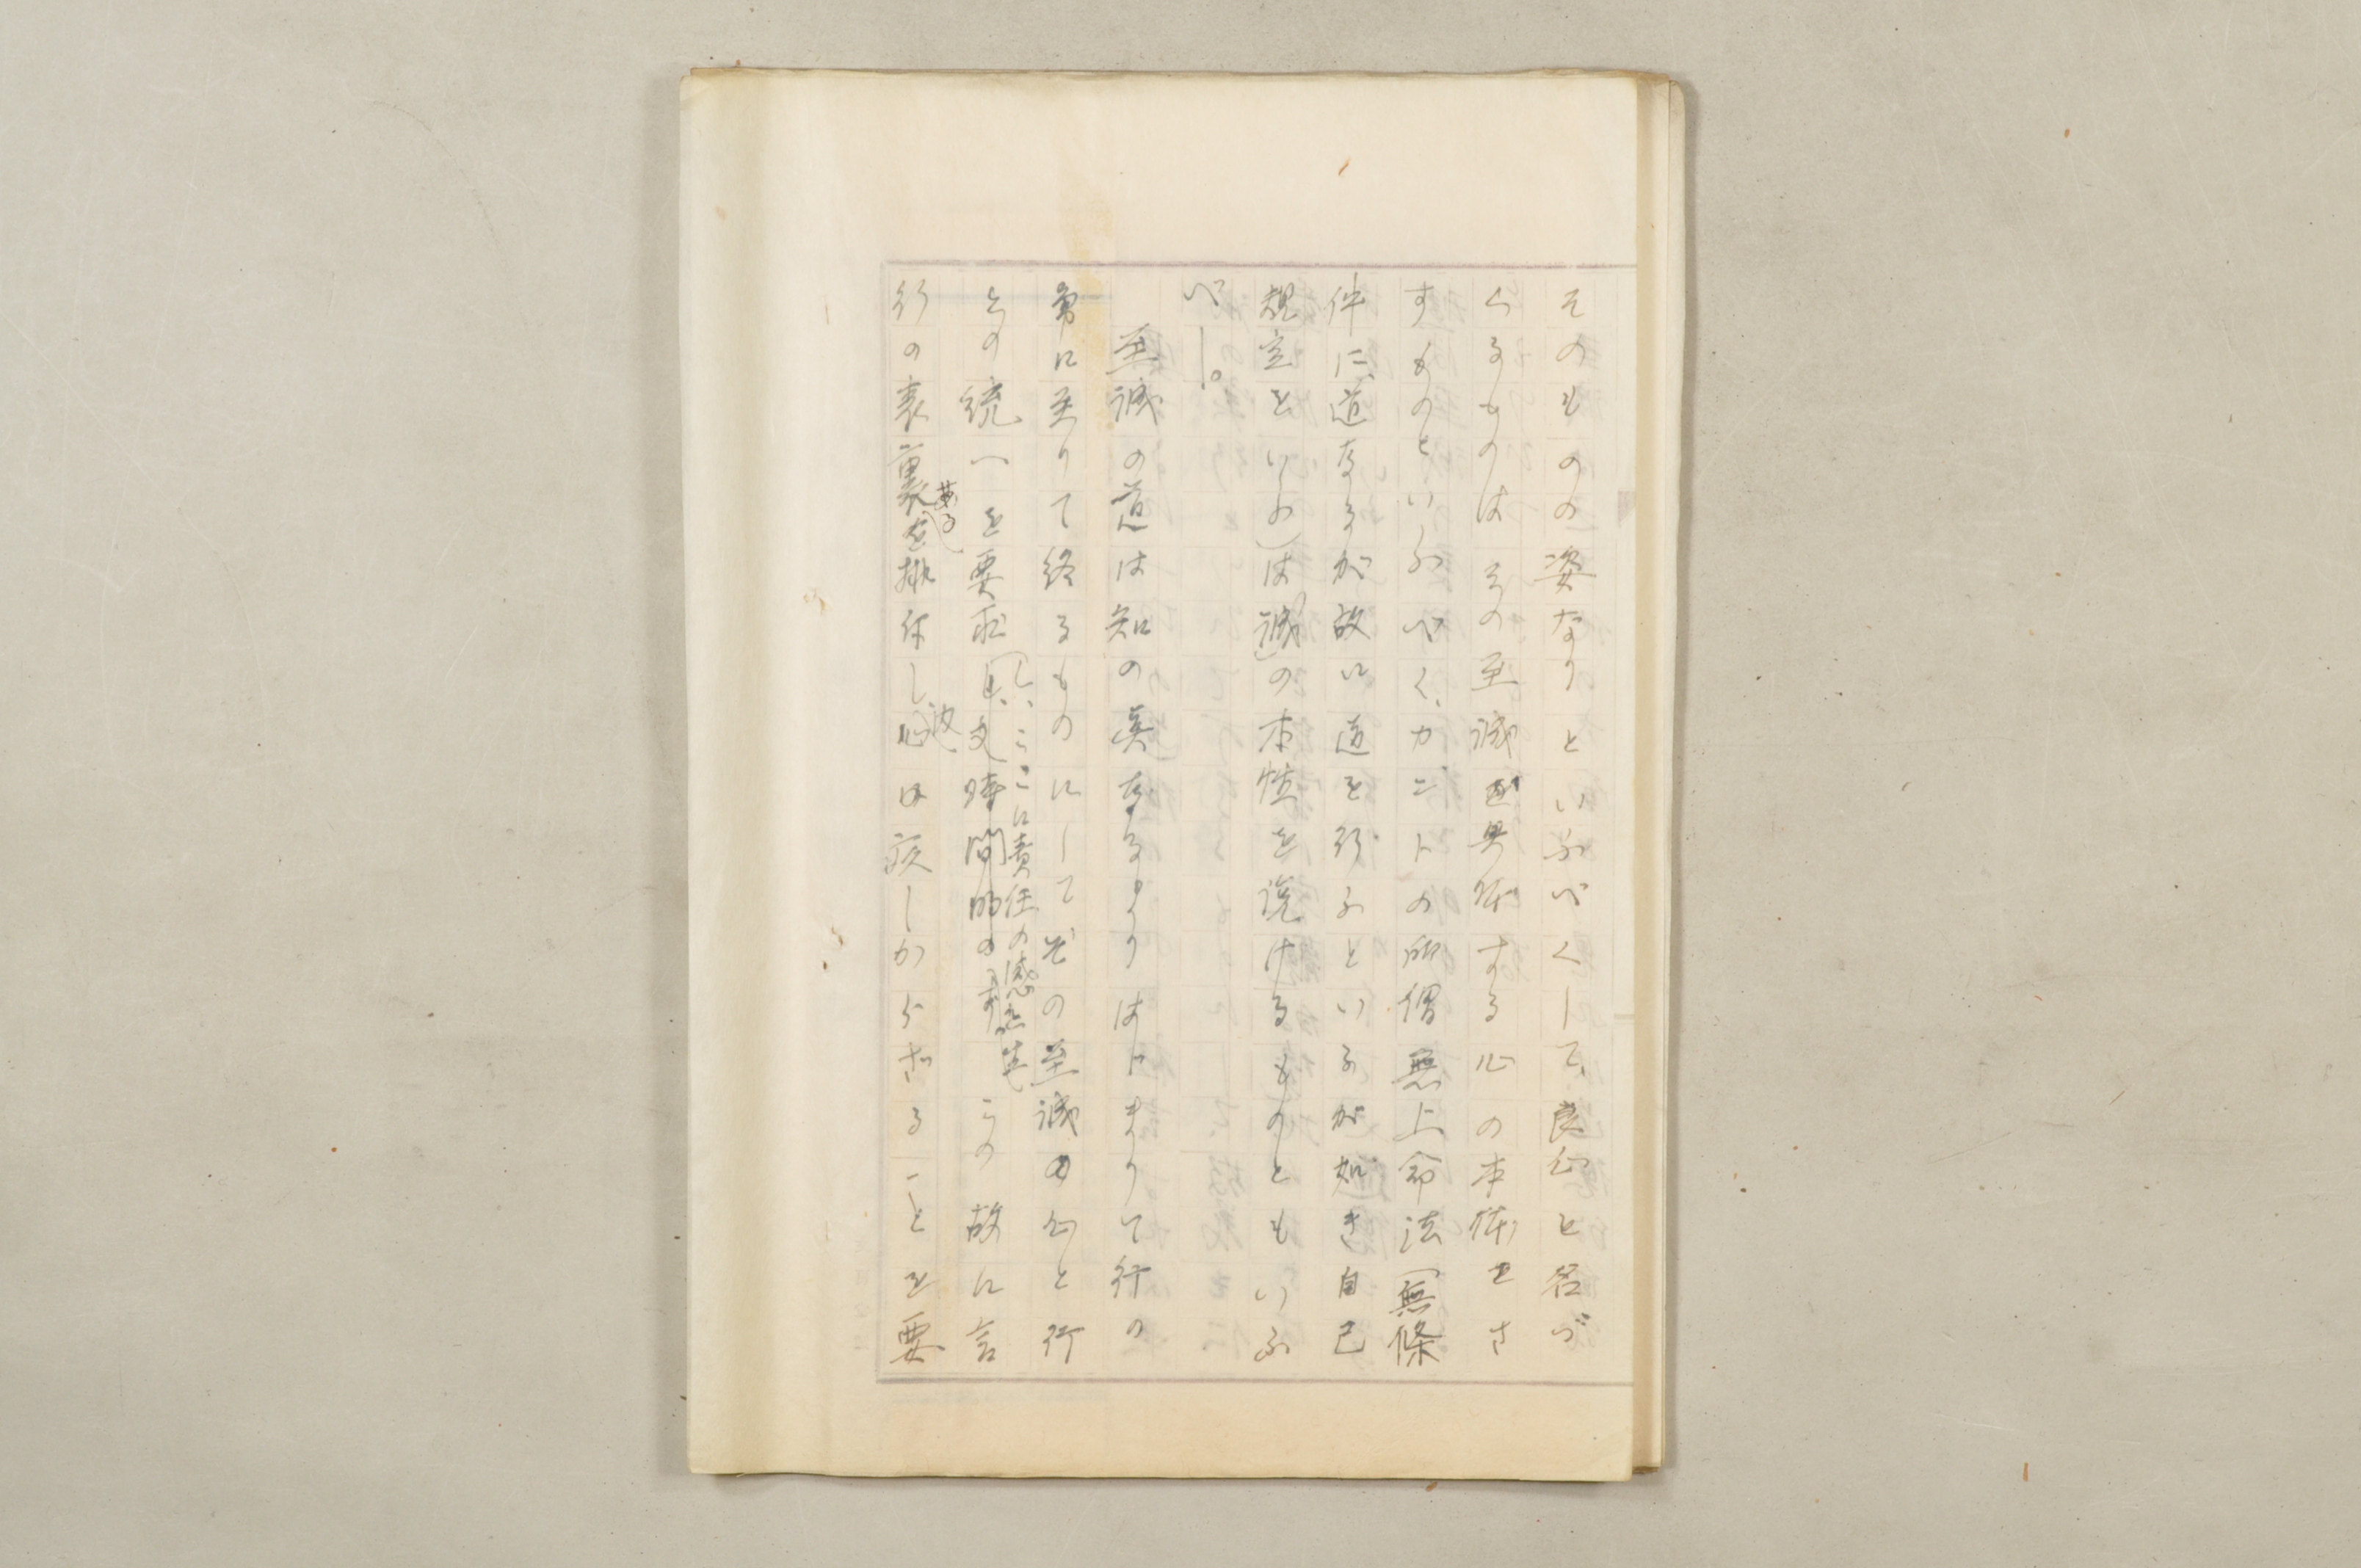 そのものの姿なりといふべくして、良心と名づ
くるものは その至誠を具体する心の本体をさ
すものといふべく、カントの所謂無上命法（無條
件に、道なるが故に道を行ふといふが如き自己
規定をいふ）は「誠」の本性を説けるものともいふ
べし。
至誠の道は知の眞なるよりはじまりて行の
に至りて終るものにしてその至誠の心と行
との統一を要求し、ここに責任の感念生
時間的の この故に言
行の表裏を排斥し、心は疚しからざることを要